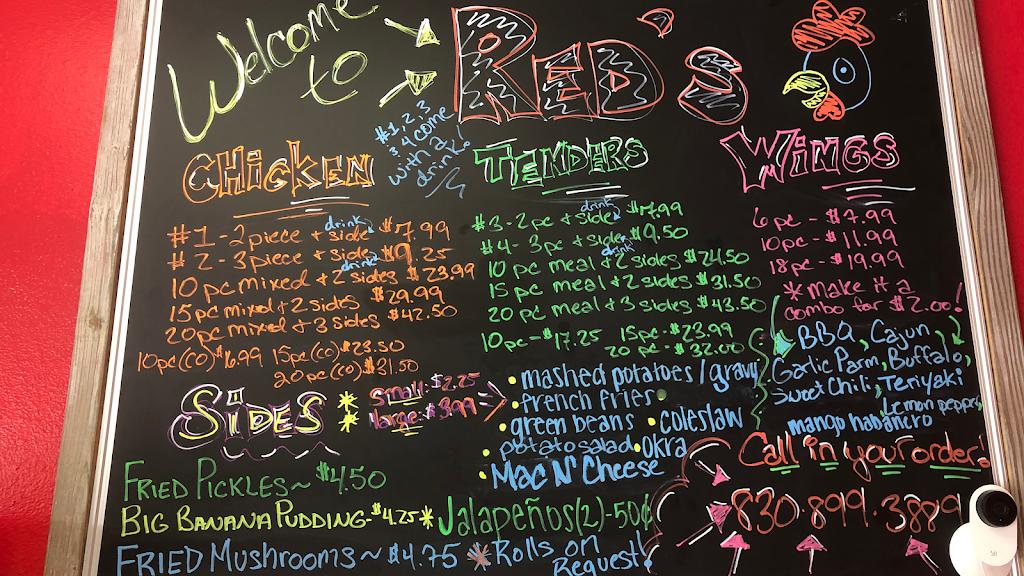 Welcome to RED'S
#1, 2, 3
& 4 come
with a
drink!
CHICKEN
#1 - 2 piece + side drink $7.99
#2 - 3 piece + side drink $9.25
10 pc mixed + 2 sides $23.99
15 pc mixed + 2 sides $29.99
20 pc mixed + 3 sides $42.50
10 pc (CO) $16.99 15 pc (CO) $23.50
20 pc (CO) $31.50
TENDERS
#3 - 2 pc + side drink $7.99
#4 - 3 pc + side drink $9.50
10 pc meal + 2 sides $24.50
15 pc meal + 2 sides $31.50
20 pc meal + 3 sides $43.50
10 pc - $17.25 15 pc - $23.99
20 pc - $32.00
WINGS
6 pc - $7.99
10 pc - $11.99
18 pc - $19.99
*make it a
combo for $2.00!
BBQ, Cajun,
Garlic Parm, Buffalo,
Sweet Chili, Teriyaki
Lemon pepper
mango habanero
SIDES
* small - $2.25
* large - $3.99
• mashed potatoes / gravy
• french fries
• green beans • coleslaw
• potato salad • OKRA
• MAC N' Cheese
FRIED PICKLES ~ $4.50
BIG BANANA PUDDING - $4.25 * Jalapeños (2) - 50¢
FRIED MUSHROOMS ~ $4.75 * Rolls on
Request!
Call in your order!
830.899.3889